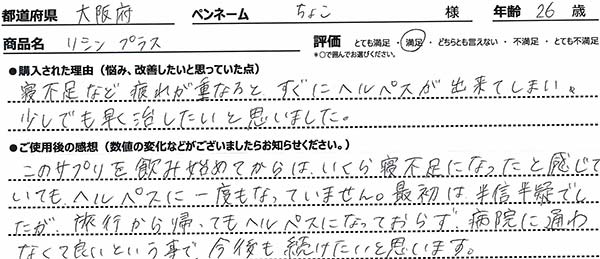 都道府県 大阪府 ペンネーム ちょこ 様 年齢 26 歳
商品名 リシン プラス 評価 とても満足・満足・どちらとも言えない・不満足・とても不満足
*○で囲んでお選びください。
●購入された理由（悩み、改善したいと思っていた点）
寝不足など 疲れが重なると すぐにヘルペスが 出来てしまい、
少しでも早く治したいと思いました。
●ご使用後の感想（数値の変化などがございましたらお知らせください。）
このサプリを飲み始めてからは、いくら寝不足になったと感じて
いても、ヘルペスに一度もなっていません。最初は、半信半疑でし
たが、旅行から帰ってもヘルペスになっておらず、病院に通わ
なくて良いという事で、今後も続けたいと思います。